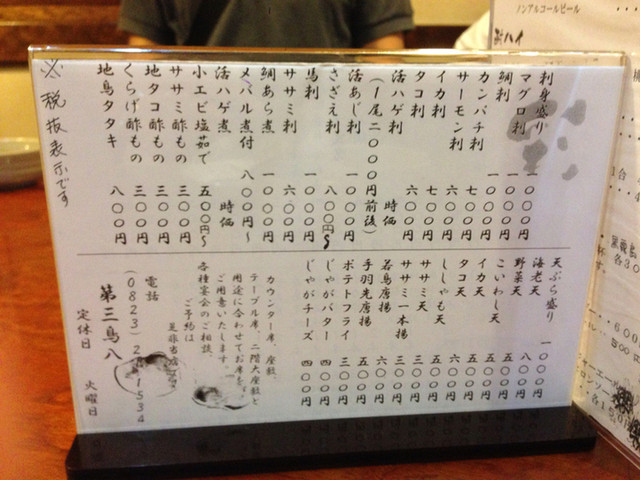 刺身盛り 一〇〇〇円
マグロ刺 一〇〇〇円
鯛刺 一〇〇〇円
カンパチ刺 七〇〇円
サーモン刺 六〇〇円
イカ刺 七〇〇円
タコ刺 六〇〇円
活ハゲ刺 時価
(1尾二〇〇〇円前後)
活あじ刺 一〇〇〇円
さざえ刺 八〇〇円〜
馬刺 一〇〇〇円
ササミ刺 六〇〇円
鯛あら煮 一〇〇〇円
メバル煮付 八〇〇円〜
活ハゲ煮 時価
小エビ塩茹で 五〇〇円〜
ササミ酢もの 三〇〇円
地タコ酢もの 三〇〇円
くらげ酢もの 三〇〇円
地鳥タタキ 八〇〇円
※税抜表示です
天ぷら盛り 一〇〇〇円
海老天 八〇〇円
野菜天 五〇〇円
こいわし天 五〇〇円
イカ天 五〇〇円
タコ天 六〇〇円
ししゃも天 五〇〇円
ササミ天 五〇〇円
ササミ一本揚 五〇〇円
若鳥唐揚 六〇〇円
手羽先唐揚 五〇〇円
ポテトフライ 三〇〇円
じゃがバター 四〇〇円
じゃがチーズ 四〇〇円
カウンター席、座敷、
テーブル席、二階大座敷と
用途に合わせてお席を
ご用意いたします。
各種宴会のご相談、
ご予約は
是非当店
電話
(0823)2 -1534
第三鳥八
定休日 火曜日
ノンアルコールビール
酎ハイ